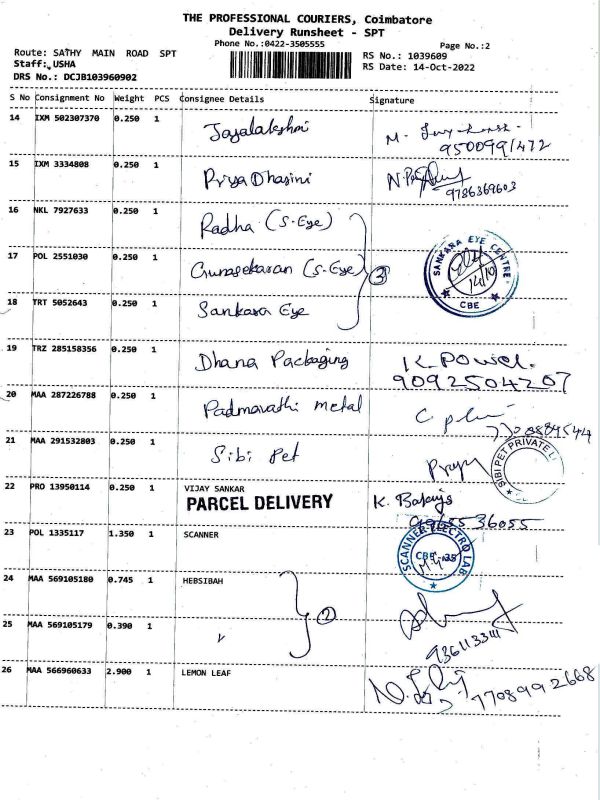 THE PROFESSIONAL COURIERS, Coimbatore
Delivery Runsheet - SPT
Phone No.:0422-3505555
Page No.:2
Route: SATHY MAIN ROAD SPT
RS No.: 1039609
Staff: USHA
RS Date: 14-Oct-2022
DRS No.: DCJB103960902
S No Consignment No Weight PCS Consignee Details Signature
14 IXM 502307370 0.250 1 Jayalakshmi M.
9500991472
15 IXM 3334808 0.250 1 PriyaDhasini
9786369603
16 NKL 7927633 0.250 1 Radha (S-Eye)
17 POL 2551030 0.250 1 Gunasekaran (S-Eye) 3
SANKARA EYE CENTRE
14/10
CBE
18 TRT 5052643 0.250 1 Sankara Eye
19 TRZ 285158356 0.250 1 Dhana Packaging K. Powel.
9092504207
20 MAA 287226788 0.250 1 Padmavathi metal
21 MAA 291532803 0.250 1 Sibi Pet
SIBI PET PRIVATE LI
22 PRO 13950114 0.250 1 VIJAY SANKAR
PARCEL DELIVERY K.
9965536055
23 POL 1335117 1.350 1 SCANNER
SCANNER ELECTRO LAB
CBE-35
24 MAA 569105180 0.745 1 HEBSIBAH
2
25 MAA 569105179 0.390 1 "
26 MAA 566960633 2.900 1 LEMON LEAF
7708992668